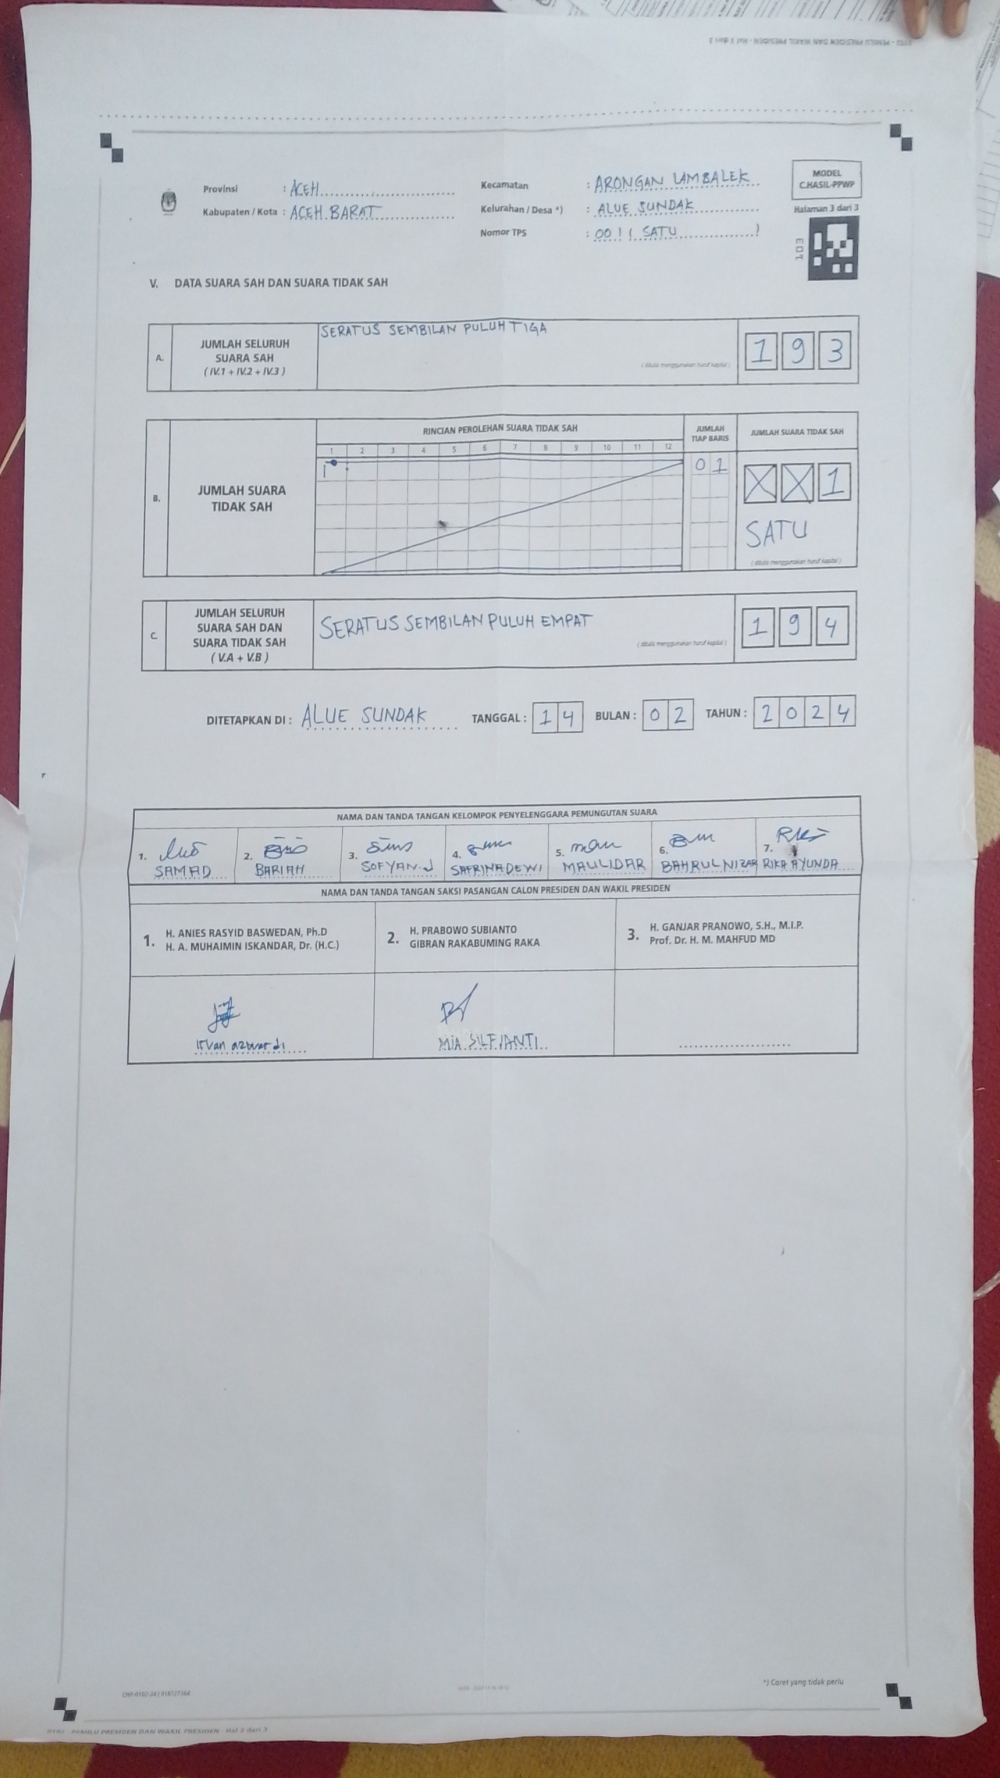 0102 - PEMILU PRESIDEN DAN WAKIL PRESIDEN - Hal 2 dari 3
Provinsi : ACEH
Kabupaten / Kota : ACEH BARAT
Kecamatan : ARONGAN LAMBALEK
Kelurahan / Desa *) : ALUE SUNDAK
Nomor TPS : 001 ( SATU )
MODEL
C.HASIL-PPWP
Halaman 3 dari 3
103
V. DATA SUARA SAH DAN SUARA TIDAK SAH
A. JUMLAH SELURUH
SUARA SAH
( IV.1 + IV.2 + IV.3 )
SERATUS SEMBILAN PULUH TIGA
( ditulis menggunakan huruf kapital )
1 9 3
B. JUMLAH SUARA
TIDAK SAH
RINCIAN PEROLEHAN SUARA TIDAK SAH
1 2 3 4 5 6 7 8 9 10 11 12
JUMLAH
TIAP BARIS
0 1
JUMLAH SUARA TIDAK SAH
X X 1
SATU
( ditulis menggunakan huruf kapital )
C. JUMLAH SELURUH
SUARA SAH DAN
SUARA TIDAK SAH
( V.A + V.B )
SERATUS SEMBILAN PULUH EMPAT
( ditulis menggunakan huruf kapital )
1 9 4
DITETAPKAN DI : ALUE SUNDAK TANGGAL : 14 BULAN : 02 TAHUN : 2024
NAMA DAN TANDA TANGAN KELOMPOK PENYELENGGARA PEMUNGUTAN SUARA
1. 2. 3. 4. 5. 6. 7.
SAMAD BARIAH SOFYAN J SAFRINA DEWI MAULIDAR BAHRUL NIZAR RIKA AYUNDA
NAMA DAN TANDA TANGAN SAKSI PASANGAN CALON PRESIDEN DAN WAKIL PRESIDEN
1. H. ANIES RASYID BASWEDAN, Ph.D
H. A. MUHAIMIN ISKANDAR, Dr. (H.C.)
2. H. PRABOWO SUBIANTO
GIBRAN RAKABUMING RAKA
3. H. GANJAR PRANOWO, S.H., M.I.P.
Prof. Dr. H. M. MAHFUD MD
Irvan azwardi
MIA SILFIANTI
*) Coret yang tidak perlu
0102 - PEMILU PRESIDEN DAN WAKIL PRESIDEN - Hal 3 dari 3